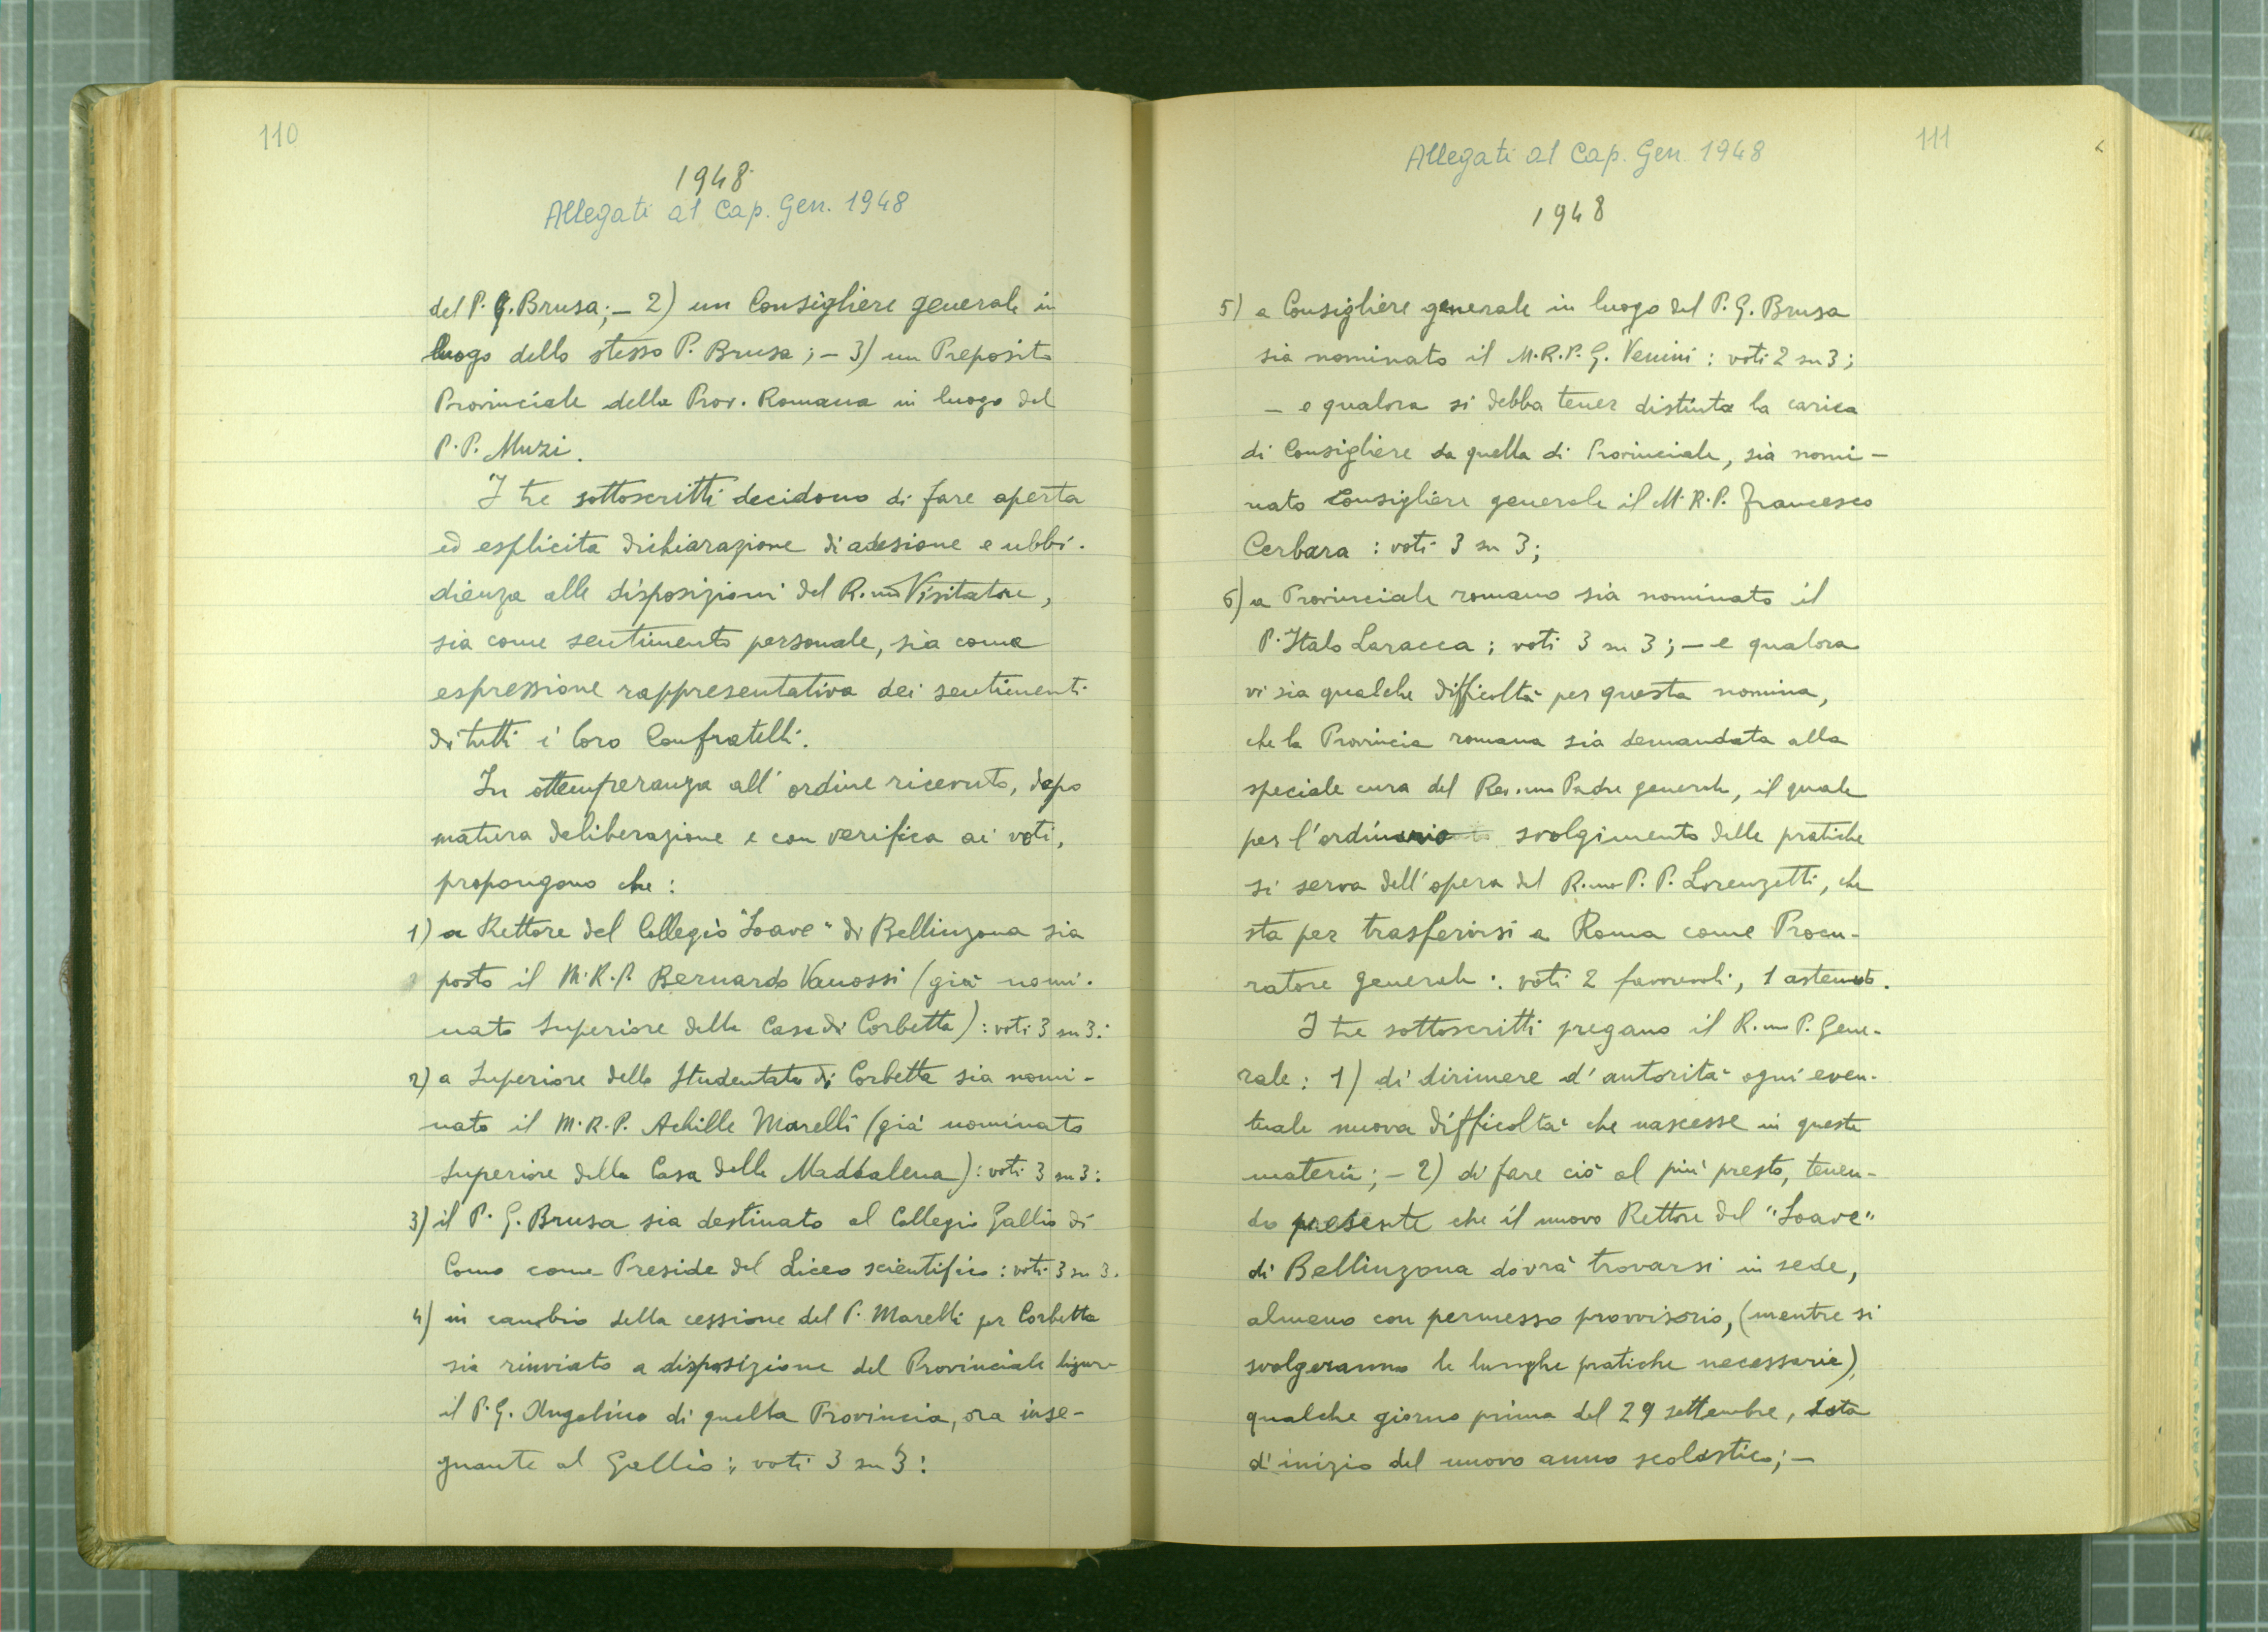 110
1948
Allegati al Cap. Gen. 1948
del P. G. Brusa; – 2) un Consigliere generale in
luogo dello stesso P. Brusa; – 3) un Preposito
Provinciale della Prov. Romana in luogo del
P. P. Muzi.
I tre sottoscritti decidono di fare aperta
ed esplicita dichiarazione di adesione e ubbi-
dienza alle disposizioni del R.mo Visitatore,
sia come sentimento personale, sia come
espressione rappresentativa dei sentimenti
di tutti i loro Confratelli.
In ottemperanza all'ordine ricevuto, dopo
matura deliberazione e con verifica ai voti,
propongono che:
1) a Rettore del Collegio "Soave" di Bellinzona sia
posto il M.R.P. Bernardo Vanossi (già nomi-
nato Superiore della Casa di Corbetta): voti 3 su 3:
2) a Superiore dello Studentato di Corbetta sia nomi-
nato il M.R.P. Achille Marelli (già nominato
Superiore della Casa della Maddalena): voti 3 su 3:
3) il P. G. Brusa sia destinato al Collegio Gallio di
Como come Preside del Liceo scientifico: voti 3 su 3.
4) in cambio della cessione del P. Marelli per Corbetta
sia rinviato a disposizione del Provinciale ligure
il P. G. Angelino di quella Provincia, ora inse-
gnante al Gallio: voti 3 su 3:
111
Allegati al Cap. Gen. 1948
1948
5) a Consigliere generale in luogo del P. G. Brusa
sia nominato il M.R.P. G. Venini: voti 2 su 3;
– e qualora si debba tener distinta la carica
di Consigliere da quella di Provinciale, sia nomi-
nato Consigliere generale il M.R.P. Francesco
Cerbara: voti 3 su 3;
6) a Provinciale romano sia nominato il
P. Italo Laracca; voti 3 su 3; – e qualora
vi sia qualche difficoltà per questa nomina,
che la Provincia romana sia demandata alla
speciale cura del Rev.mo Padre generale, il quale
per l'ordinario svolgimento delle pratiche
si serva dell'opera del R.mo P. P. Lorenzetti, che
sta per trasferirsi a Roma come Procu-
ratore generale: voti 2 favorevoli, 1 astenuto.
I tre sottoscritti pregano il R.mo P. Gene-
rale: 1) di dirimere d'autorità ogni even-
tuale nuova difficoltà che nascesse in questa
materia; – 2) di fare ciò al più presto, tenen-
do presente che il nuovo Rettore del "Soave"
di Bellinzona dovrà trovarsi in sede,
almeno con permesso provvisorio, (mentre si
svolgeranno le lunghe pratiche necessarie),
qualche giorno prima del 29 settembre, data
d'inizio del nuovo anno scolastico; –